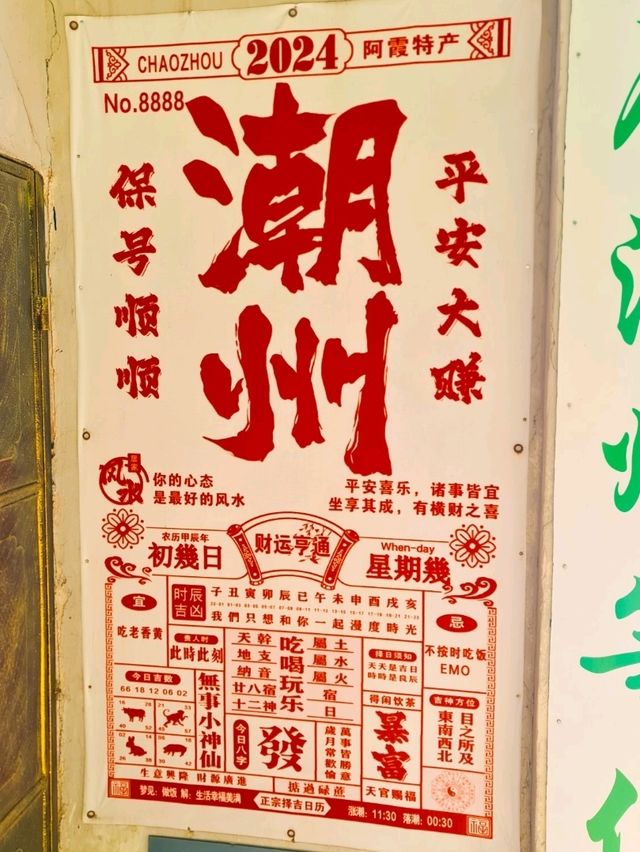 CHAOZHOU 2024 阿霞特产
No.8888
潮州
保号顺顺
平安大赚
居家
风水
你的心态
是最好的风水
平安喜乐，诸事皆宜
坐享其成，有横财之喜
农历甲辰年
初幾日
财运亨通
When-day
星期幾
宜
吃老香黄
时辰吉凶
子丑寅卯辰巳午未申酉戌亥
我們只想和你一起漫度時光
忌
不按时吃饭
EMO
贵人时
此時此刻
天幹
地支
納音
廿八宿
十二神
吃喝玩乐
屬土
屬水
屬火
宿
日
择日须知
天天是吉日
時時是良辰
今日吉数
66 18 12 06 02
無事小神仙
今日八字
發
萬事皆勝意
歲月常歡愉
得闲饮茶
暴富
天官赐福
吉神方位
目之所及
東南西北
生意興隆 財源廣進
掂過碌蔗
梦见：做饭 解：生活幸福美满
正宗择吉日历
涨潮：11:30 落潮：00:30
福
福